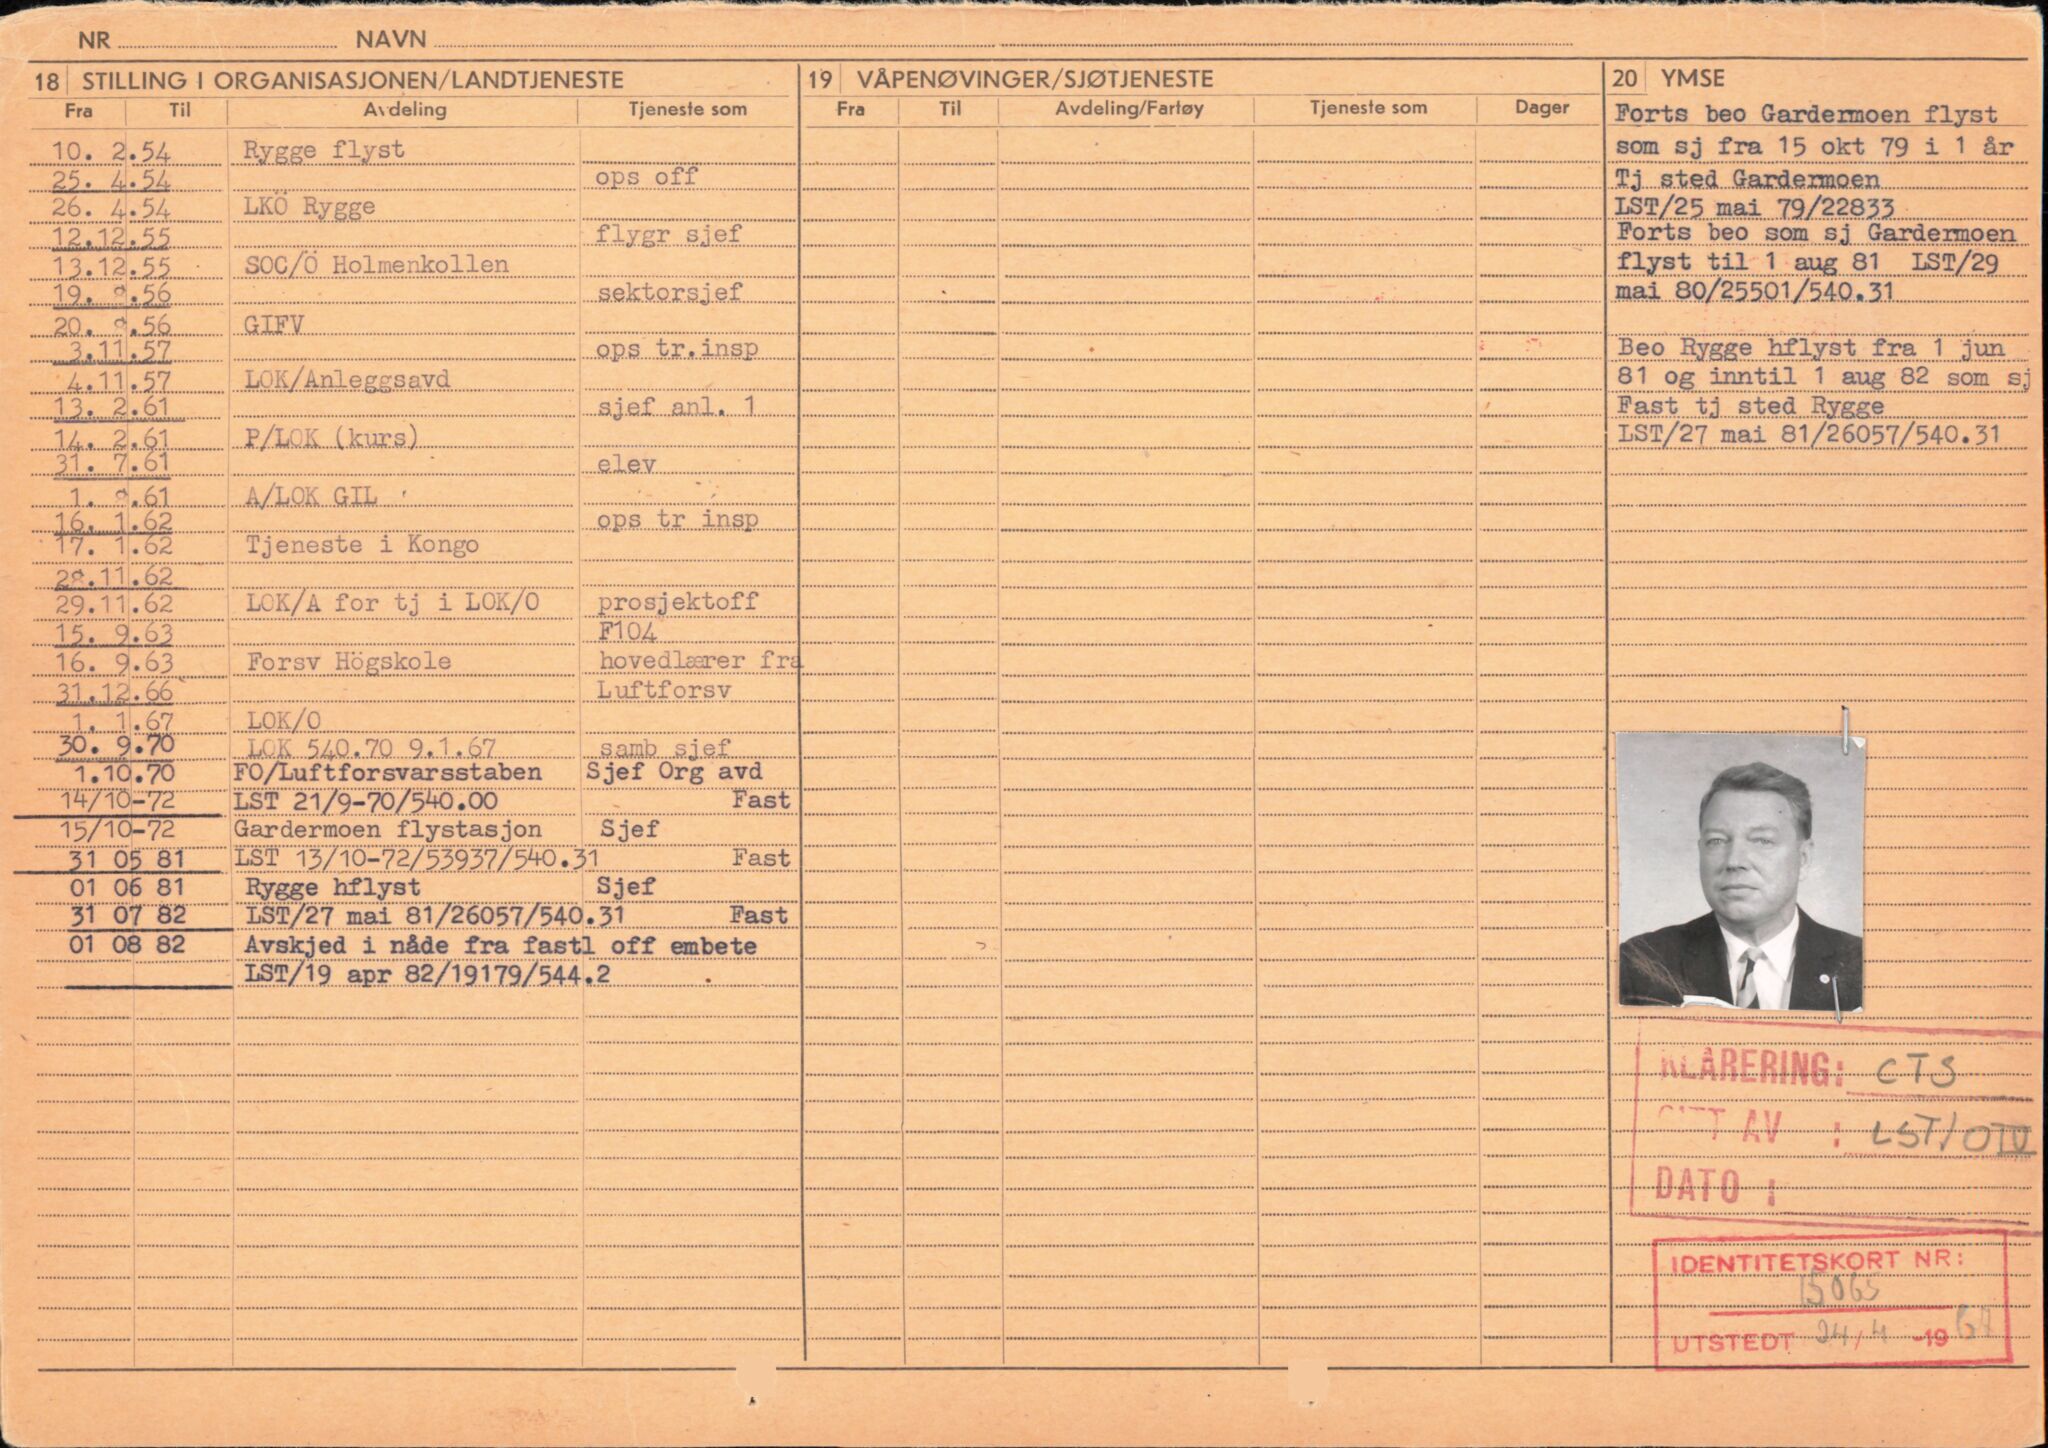 NR NAVN
18 STILLING I ORGANISASJONEN/LANDTJENESTE
Fra Til Avdeling Tjeneste som
10. 2.54 Rygge flyst
25. 4.54 ops off
26. 4.54 LKÖ Rygge
12.12.55 flygr sjef
13.12.55 SOC/Ö Holmenkollen
19. 8.56 sektorsjef
20. 8.56 GIFV
3.11.57 ops tr.insp
4.11.57 LOK/Anleggsavd
13. 2.61 sjef anl. 1
14. 2.61 P/LOK (kurs)
31. 7.61 elev
1. 8.61 A/LOK GIL
16. 1.62 ops tr insp
17. 1.62 Tjeneste i Kongo
28.11.62
29.11.62 LOK/A for tj i LOK/O prosjektoff
15. 9.63 F104
16. 9.63 Forsv Högskole hovedlærer fra
31.12.66 Luftforsv
1. 1.67 LOK/O
30. 9.70 LOK 540.70 9.1.67 samb sjef
1.10.70 FO/Luftforsvarsstaben Sjef Org avd
14/10-72 LST 21/9-70/540.00 Fast
15/10-72 Gardermoen flystasjon Sjef
31 05 81 LST 13/10-72/53937/540.31 Fast
01 06 81 Rygge hflyst Sjef
31 07 82 LST/27 mai 81/26057/540.31 Fast
01 08 82 Avskjed i nåde fra fastl off embete
LST/19 apr 82/19179/544.2
19 VÅPENØVINGER/SJØTJENESTE
Fra Til Avdeling/Fartøy Tjeneste som Dager
20 YMSE
Forts beo Gardermoen flyst
som sj fra 15 okt 79 i 1 år
Tj sted Gardermoen
LST/25 mai 79/22833
Forts beo som sj Gardermoen
flyst til 1 aug 81 LST/29
mai 80/25501/540.31
Beo Rygge hflyst fra 1 jun
81 og inntil 1 aug 82 som sj
Fast tj sted Rygge
LST/27 mai 81/26057/540.31
KLARERING: CTS
GITT AV : LST/
DATO :
IDENTITETSKORT NR:
15065
UTSTEDT 24/4 -19